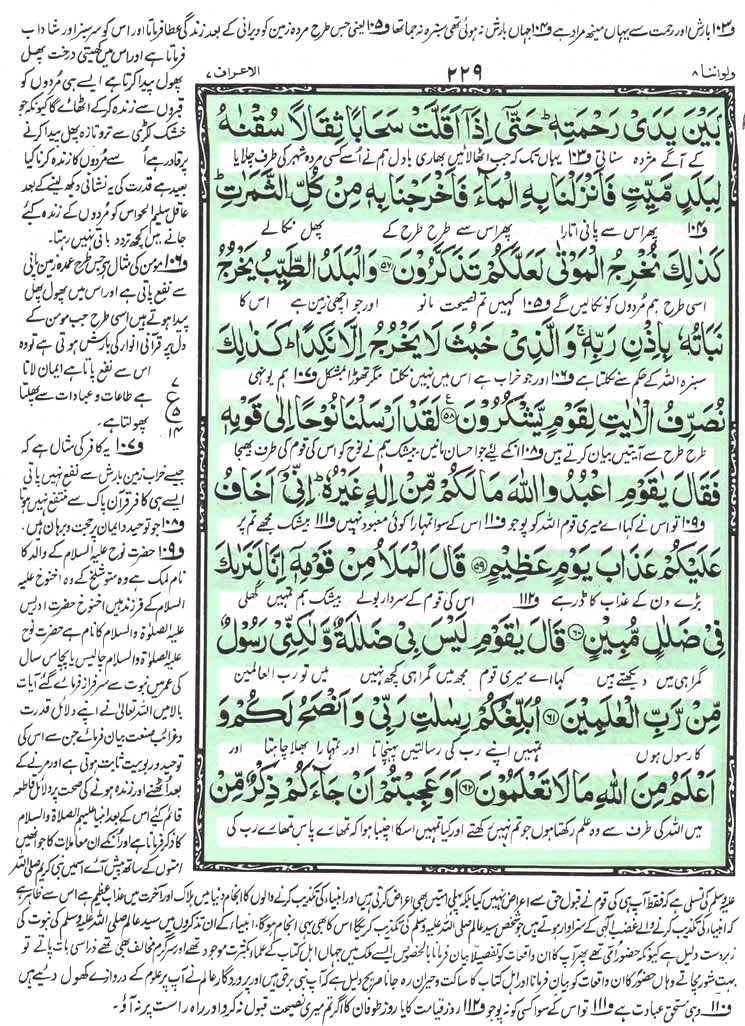 ف۱۰۳ بارش اور رحمت سے یہاں مینھ مراد ہے ف۱۰۴ جہاں بارش نہ ہوئی تھی سبزہ نہ جما تھا ف۱۰۵ یعنی جس طرح مردہ زمین کو ویرانی کے بعد زندگی عطا فرماتا اور اس کو سرسبز اور شاداب
ولواننا ۸
۲۲۹
الاعراف ۷
بَيْنَ يَدَىْ رَحْمَتِهٖ ؕ حَتّٰۤى اِذَاۤ اَقَلَّتْ سَحَابًا ثِقَالًا سُقْنٰهُ
کے آگے مژدہ سناتی ف۱۰۳ یہاں تک کہ جب اٹھا لائیں بھاری بادل ہم نے اسے کسی مردہ شہر کی طرف چلایا
لِبَلَدٍ مَّيِّتٍ فَاَنْزَلْنَا بِهِ الْمَآءَ فَاَخْرَجْنَا بِهٖ مِنْ كُلِّ الثَّمَرٰتِ ؕ
ف۱۰۴ پھر اس سے پانی اتارا پھر اس سے طرح طرح کے پھل نکالے
كَذٰلِكَ نُخْرِجُ الْمَوْتٰى لَعَلَّكُمْ تَذَكَّرُوْنَ ﴿۵۷﴾ وَالْبَلَدُ الطَّيِّبُ يَخْرُجُ
اسی طرح ہم مردوں کو نکالیں گے ف۱۰۵ کہیں تم نصیحت مانو اور جو اچھی زمین ہے اس کا
نَبَاتُهٗ بِاِذْنِ رَبِّهٖ ۚ وَالَّذِىْ خَبُثَ لَا يَخْرُجُ اِلَّا نَكِدًا ؕ كَذٰلِكَ
سبزہ اللہ کے حکم سے نکلتا ہے ف۱۰۶ اور جو خراب ہے اس میں نہیں نکلتا مگر تھوڑا بمشکل ف۱۰۷ ہم یونہی
نُصَرِّفُ الْاٰيٰتِ لِقَوْمٍ يَّشْكُرُوْنَ ﴿۵۸﴾ لَقَدْ اَرْسَلْنَا نُوْحًا اِلٰى قَوْمِهٖ
طرح طرح سے آیتیں بیان کرتے ہیں ف۱۰۸ ان کے لئے جو احسان مانیں، بیشک ہم نے نوح کو اس کی قوم کی طرف بھیجا
فَقَالَ يٰقَوْمِ اعْبُدُوا اللّٰهَ مَا لَكُمْ مِّنْ اِلٰهٍ غَيْرُهٗ ؕ اِنِّىْۤ اَخَافُ
ف۱۰۹ تو اس نے کہا اے میری قوم اللہ کو پوجو ف۱۱۰ اس کے سوا تمہارا کوئی معبود نہیں ف۱۱۱ بیشک مجھے تم پر
عَلَيْكُمْ عَذَابَ يَوْمٍ عَظِيْمٍ ﴿۵۹﴾ قَالَ الْمَلَاُ مِنْ قَوْمِهٖۤ اِنَّا لَنَرٰىكَ
بڑے دن کے عذاب کا ڈر ہے ف۱۱۲ اس کی قوم کے سردار بولے بیشک ہم تمہیں کھلی
فِىْ ضَلٰلٍ مُّبِيْنٍ ﴿۶۰﴾ قَالَ يٰقَوْمِ لَيْسَ بِىْ ضَلٰلَةٌ وَّلٰكِنِّىْ رَسُوْلٌ
گمراہی میں دیکھتے ہیں کہا اے میری قوم مجھ میں گمراہی کچھ نہیں میں تو رب العالمین
مِّنْ رَّبِّ الْعٰلَمِيْنَ ﴿۶۱﴾ اُبَلِّغُكُمْ رِسٰلٰتِ رَبِّىْ وَاَنْصَحُ لَكُمْ وَ
کا رسول ہوں تمہیں اپنے رب کی رسالتیں پہنچاتا اور تمہارا بھلا چاہتا اور
اَعْلَمُ مِنَ اللّٰهِ مَا لَا تَعْلَمُوْنَ ﴿۶۲﴾ اَوَعَجِبْتُمْ اَنْ جَآءَكُمْ ذِكْرٌ مِّنْ
میں اللہ کی طرف سے وہ علم رکھتا ہوں جو تم نہیں رکھتے اور کیا تمہیں اس کا اچنبا ہوا کہ تمہارے پاس تمہارے رب کی
فرماتا ہے اور اس میں کھیتی درخت پھل
پھول پیدا کرتا ہے ایسے ہی مردوں کو
قبروں سے زندہ کر کے اٹھائے گا کیونکہ جو
خشک لکڑی سے تروتازہ پھل پیدا کرنے
پر قادر ہے اسے مردوں کا زندہ کرنا کیا
بعید ہے قدرت کی یہ نشانی دیکھ لینے کے بعد
عاقل سلیم الحواس کو مردوں کے زندہ کئے
جانے میں کچھ تردد باقی نہیں رہتا۔
ف۱۰۶ مؤمن کی مثال ہے جس طرح عمدہ زمین پانی
سے نفع پاتی ہے اور اس میں پھول پھل
پیدا ہوتے ہیں اسی طرح جب مومن کے
دل پر قرآنی انوار کی بارش ہوتی ہے تو وہ
اس سے نفع پاتا ہے ایمان لاتا
ہے طاعات و عبادات سے پھلتا
پھولتا ہے۔
۷
ع
۵
۱۴
ف۱۰۷ یہ کافر کی مثال ہے کہ
جیسے خراب زمین بارش سے نفع نہیں پاتی
ایسے ہی کافر قرآن پاک سے منتفع نہیں ہوتا
ف۱۰۸ جو توحید و ایمان پر حجت و برہان ہیں،
ف۱۰۹ حضرت نوح علیہ السلام کے والد کا
نام لمک ہے وہ متوشلخ کے وہ اخنوخ علیہ
السلام کے فرزند ہیں اخنوخ حضرت ادریس
علیہ الصلوٰۃ والسلام کا نام ہے حضرت نوح
علیہ الصلوٰۃ والسلام چالیس یا پچاس سال
کی عمر میں نبوت سے سرفراز فرمائے گئے آیات
بالا میں اللہ تعالیٰ نے اپنے دلائل قدرت
و غرائب صنعت بیان فرمائے جن سے اس کی
توحید و ربوبیت ثابت ہوتی ہے اور مرنے کے
بعد اُٹھنے اور زندہ ہونے کی صحت پر دلائل قاطعہ
قائم کئے اس کے بعد انبیاء علیہم الصلاۃ والسلام
کا ذکر فرماتا ہے اور انکے ان معاملات کا جو انھیں
امتوں کے ساتھ پیش آئے اسمیں نبی کریم صلی اللہ
علیہ وسلم کی تسلی ہے کہ فقط آپ ہی کی قوم نے قبول حق سے اعراض نہیں کیا بلکہ پہلی امتیں بھی اعراض کرتی رہیں اور انبیاء کی تکذیب کرنے والوں کا انجام دنیا میں ہلاک اور آخرت میں عذاب عظیم ہے اس سے ظاہر ہے
کہ انبیاء کی تکذیب کرنے والے غضب الٰہی کے سزاوار ہوتے ہیں جو شخص سید عالم صلی اللہ علیہ وسلم کی تکذیب کرے گا اس کا بھی یہی انجام ہو گا، انبیاء کے ان تذکروں میں سید عالم صلی اللہ علیہ وسلم کی نبوت کی
زبردست دلیل ہے کیونکہ حضور امی تھے پھر آپ کا ان واقعات کو تفصیلاً بیان فرمانا بالخصوص ایسے ملک میں جہاں اہل کتاب کے علماء بکثرت موجود تھے اور سرگرم مخالف بھی تھے ذرا سی بات پاتے تو
بہت شور مچاتے وہاں حضور کا ان واقعات کو بیان فرمانا اور اہل کتاب کا ساکت و حیران رہ جانا صریح دلیل ہے کہ آپ نبی برحق ہیں اور پروردگار عالم نے آپ پر علوم کے دروازے کھول دیئے ہیں
ف۱۱۰ وہی مستحق عبادت ہے ف۱۱۱ تو اس کے سوا کسی کو نہ پوجو ف۱۱۲ روز قیامت کا یا روز طوفان کا اگر تم میری نصیحت قبول نہ کرو اور راہ راست پر نہ آؤ۔